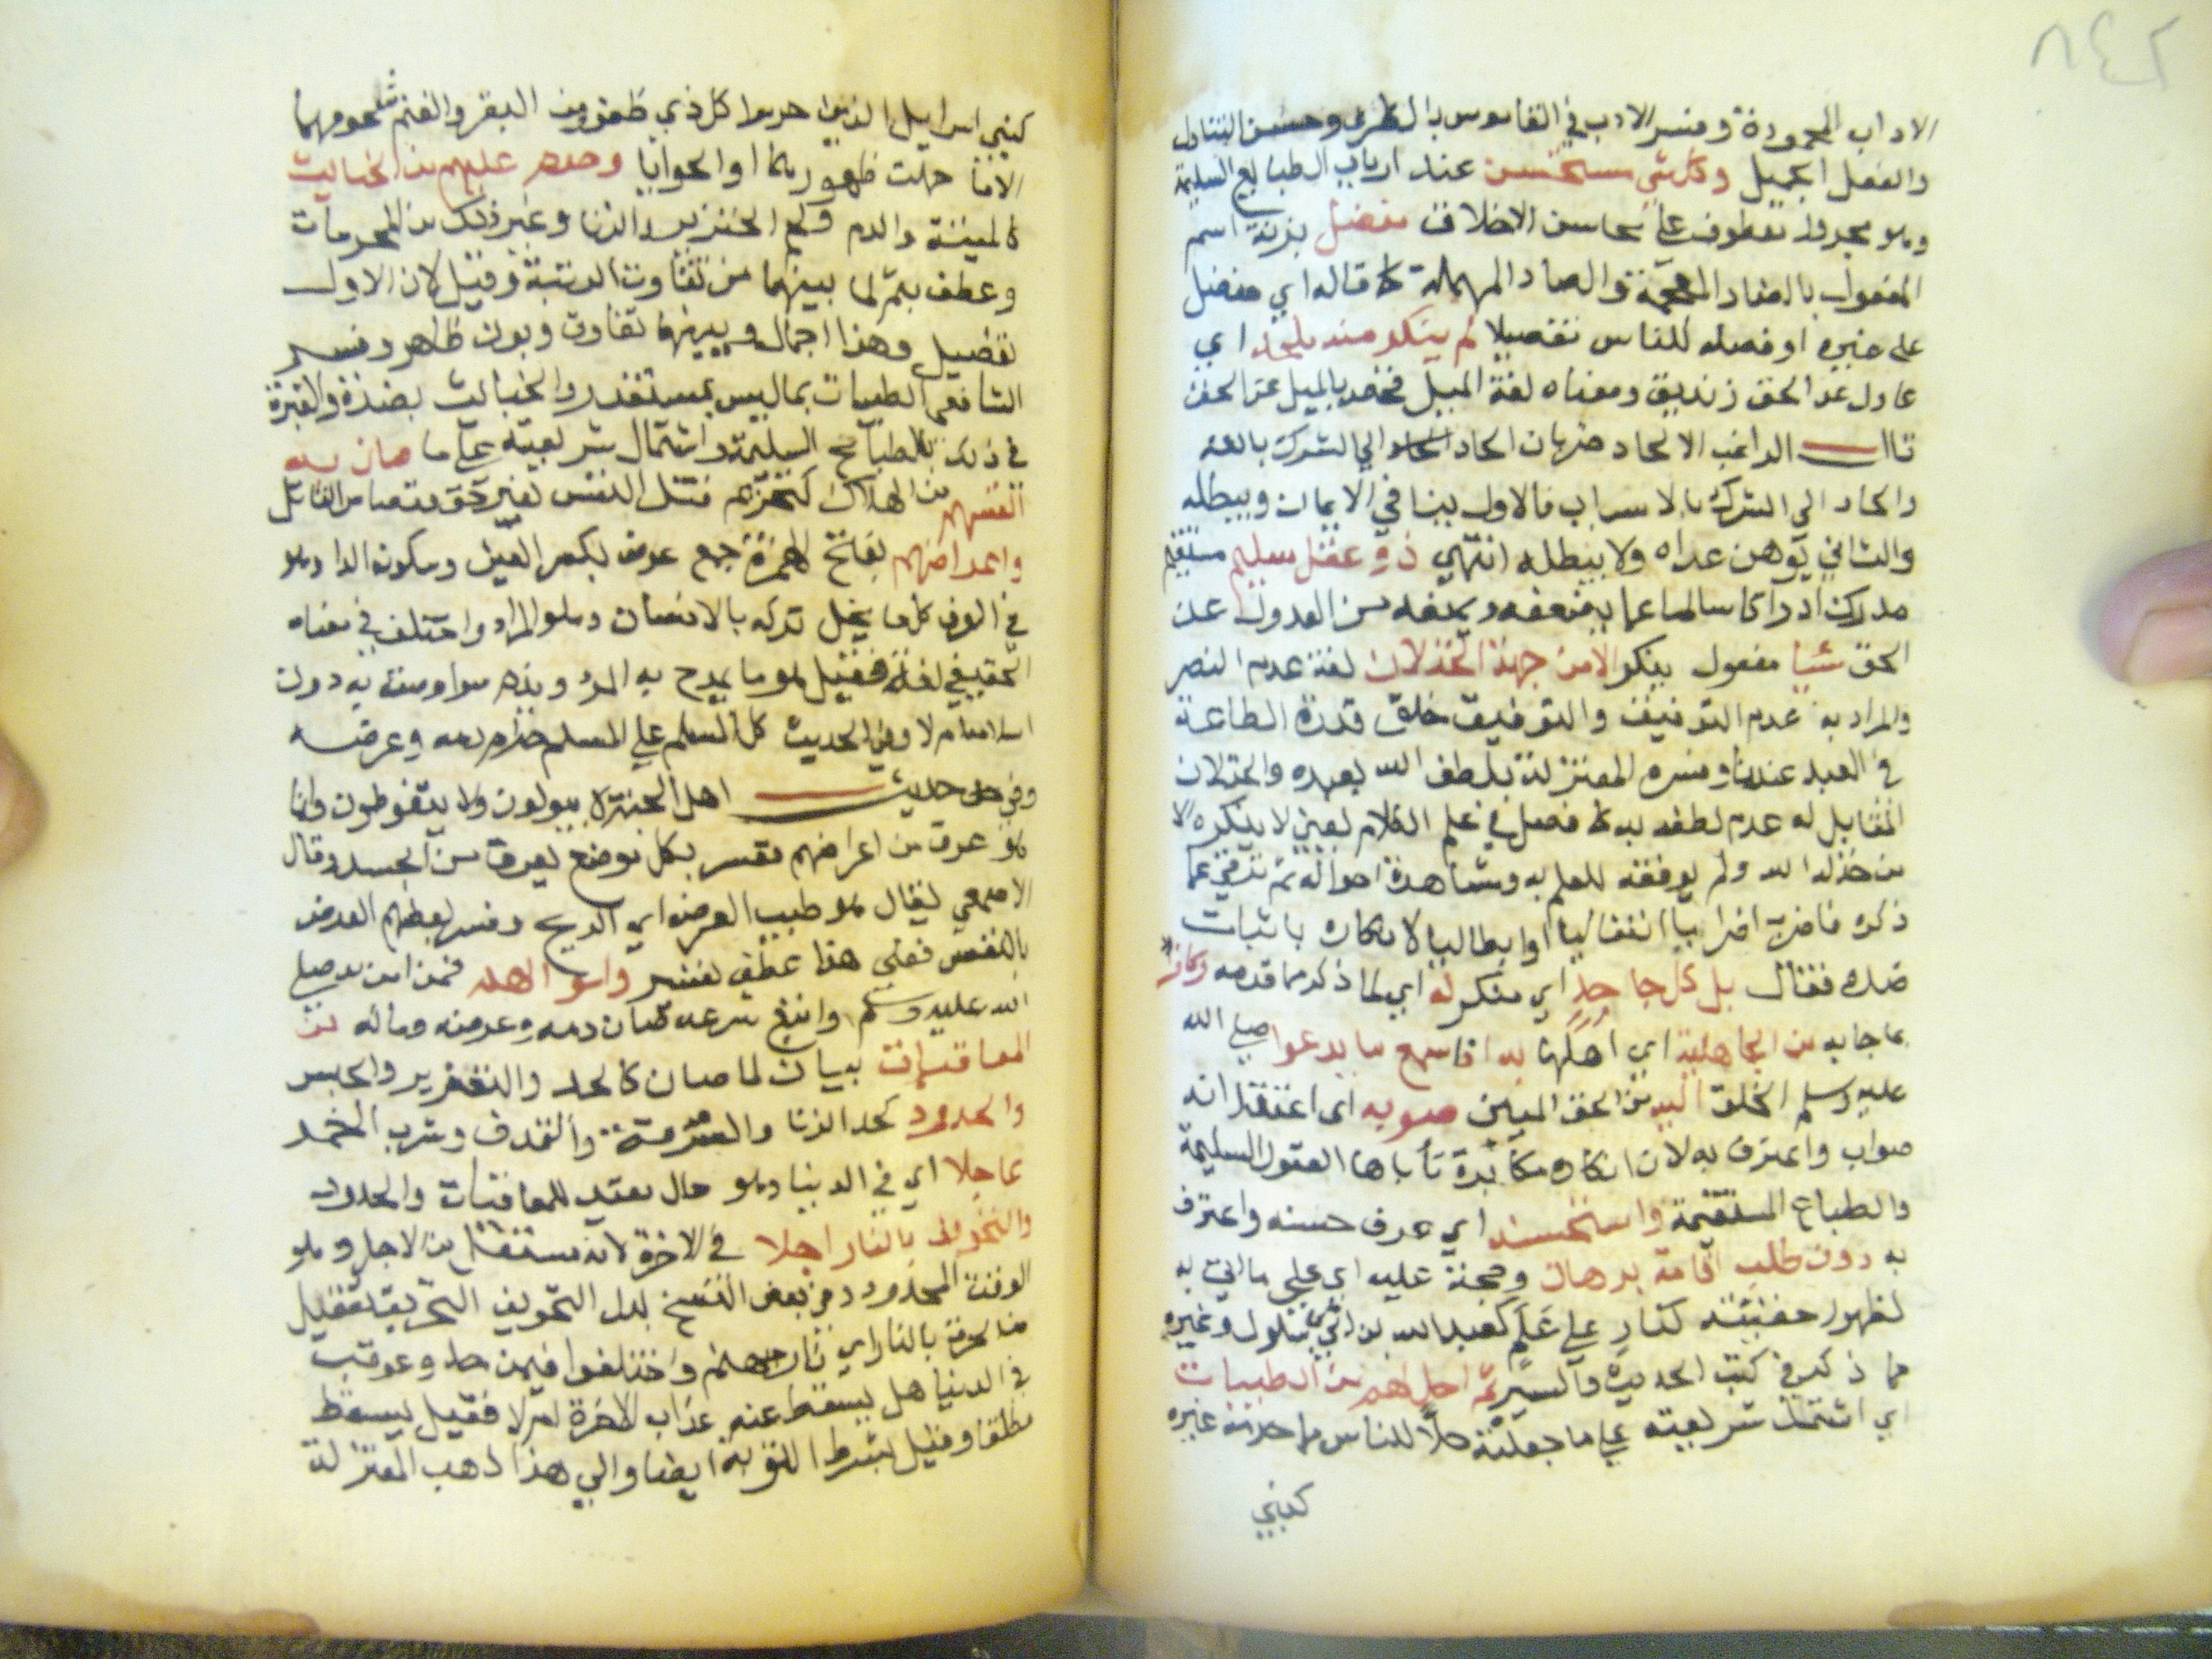 ٨٤٢
الاداب المحمودة وفسر الادب في القاموس بالظرف وحسن التناول
والفعل الجميل وكل شي مستحسن عند ارباب الطبايع السليمة
وهو مجرور معطوف علي محاسن الاخلاق مفضل بزنة اسم
المفعول بالضاد المعجمة والصاد المهملة كما قاله اي مفضل
علي غيره او فصله للناس تفصيلا لم ينكر منه ملحد اي
عادل عن الحق زنديق ومعناه لغة الميل فخص بالميل عن الحق
قال الراغب الالحاد ضربان الحاد الي الشرك بالله
والحاد الي الشرك بالاسباب فالاول ينافي الايمان ويبطله
والثاني يوهن عراه ولا يبطله انتهي ذو عقل سليم مستقيم
مدرك ادراكا سالما عما يضعفه ويمنعه من العدول عن
الحق شيا مفعول ينكر الا من جهة الخذلان لغة عدم النصر
والمراد به عدم التوفيق والتوفيق خلق قدرة الطاعة
في العبد عندنا وفسره المعتزلة بلطف الله بعبده والخذلان
المقابل له عدم لطفه به كما فصل في علم الكلام يعني لا ينكره الا
من خذله الله ولم يوفقه للعلم به ومشاهدة احواله ثم ترقي عما
ذكره فاضرب اضرابا انتقاليا او ابطاليا لانكاره باثبات
ضده فقال بل كل جاحد اي منكر له اي لما ذكر مما قدمه وكافر
بما جا به من الجاهلية اي اهلها به اذا سمع ما يدعوا صلي الله
عليه وسلم الخلق اليه من الحق المبين صوبه اي اعتقد انه
صواب واعترف به لان انكاره مكابرة تأباها العقول السليمة
والطباع المستقيمة واستحسنه اي عرف حسنه واعترف
به دون طلب اقامة برهان وحجة عليه اي علي ما اتي به
لظهور حقيته كنار علي علم كعبد الله بن ابي بن سلول وغيره
مما ذكر في كتب الحديث والسير ثم احل لهم من الطيبات
اي اشتملت شريعته علي ما جعلته حلا للناس مما حرمته غيره
كبني
كبني اسرايل الذين حرموا كل ذي ظفر ومن البقر والغنم شحومهما
الا ما حملت ظهورهما او الحوايا وحرم عليهم من الخبايث
كالميتة والدم ولحم الخنزير والزنا وغير ذلك من المحرمات
وعطف بثم لما بينهما من تفاوت الرتبة وقيل لان الاول
تفصيل وهذا اجمال وبينهما تفاوت وبون ظاهر وفسر
الشافعي الطيبات بما ليس بمستقذر والخبايث بضده والعبرة
في ذلك بالطبايع السليمة واشتمال شريعته علي ما صان به
انفسهم من الهلاك كتحريم قتل النفس بغير حق وقصاص القاتل
واعراضهم بفتح الهمزة جمع عرض بكسر العين وسكون الرا وهو
في العرف كل ما يخل تركه بالانسان وهو المراد واختلف في معناه
الحقيقي لغة فقيل هو ما يمدح به المرؤ ويذم سوا وصف به دون
اسلافه ام لا وفي الحديث كل المسلم علي المسلم حرام دمه وعرضه
وفي حديث اهل الجنة لا يبولون ولا يتغوطون وانما
هو عرق من اعراضهم مفسر بكل موضع يعرق من الجسد وقال
الاصمعي يقال هو طيب العرض اي الريح وفسر بعضهم العرض
بالنفس فعلي هذا عطف تفسير واموالهم فمن امن به صلي
الله عليه وسلم واتبع شرعه صان دمه وعرضه وماله من
المعاقبات بيان لما صان كالحد والتعزير والحبس
والحدود كحد الزنا والسرقة والقذف وشرب الخمر
عاجلا اي في الدنيا وهو حال مقيد للمعاقبات والحدود
والتخويف بالنار اجلا في الاخرة لانه مستقبل من الاجل وهو
الوقت المحدود وفي بعض النسخ بدل التخويف التحريق تفعيل
من الحرق بالنار اي نار جهنم واختلفوا فيمن حد وعوقب
في الدنيا هل يسقط عنه عذاب الاخرة ام لا فقيل يسقط
مطلقا وقيل بشرط التوبة ايضا والي هذا ذهب المعتزلة